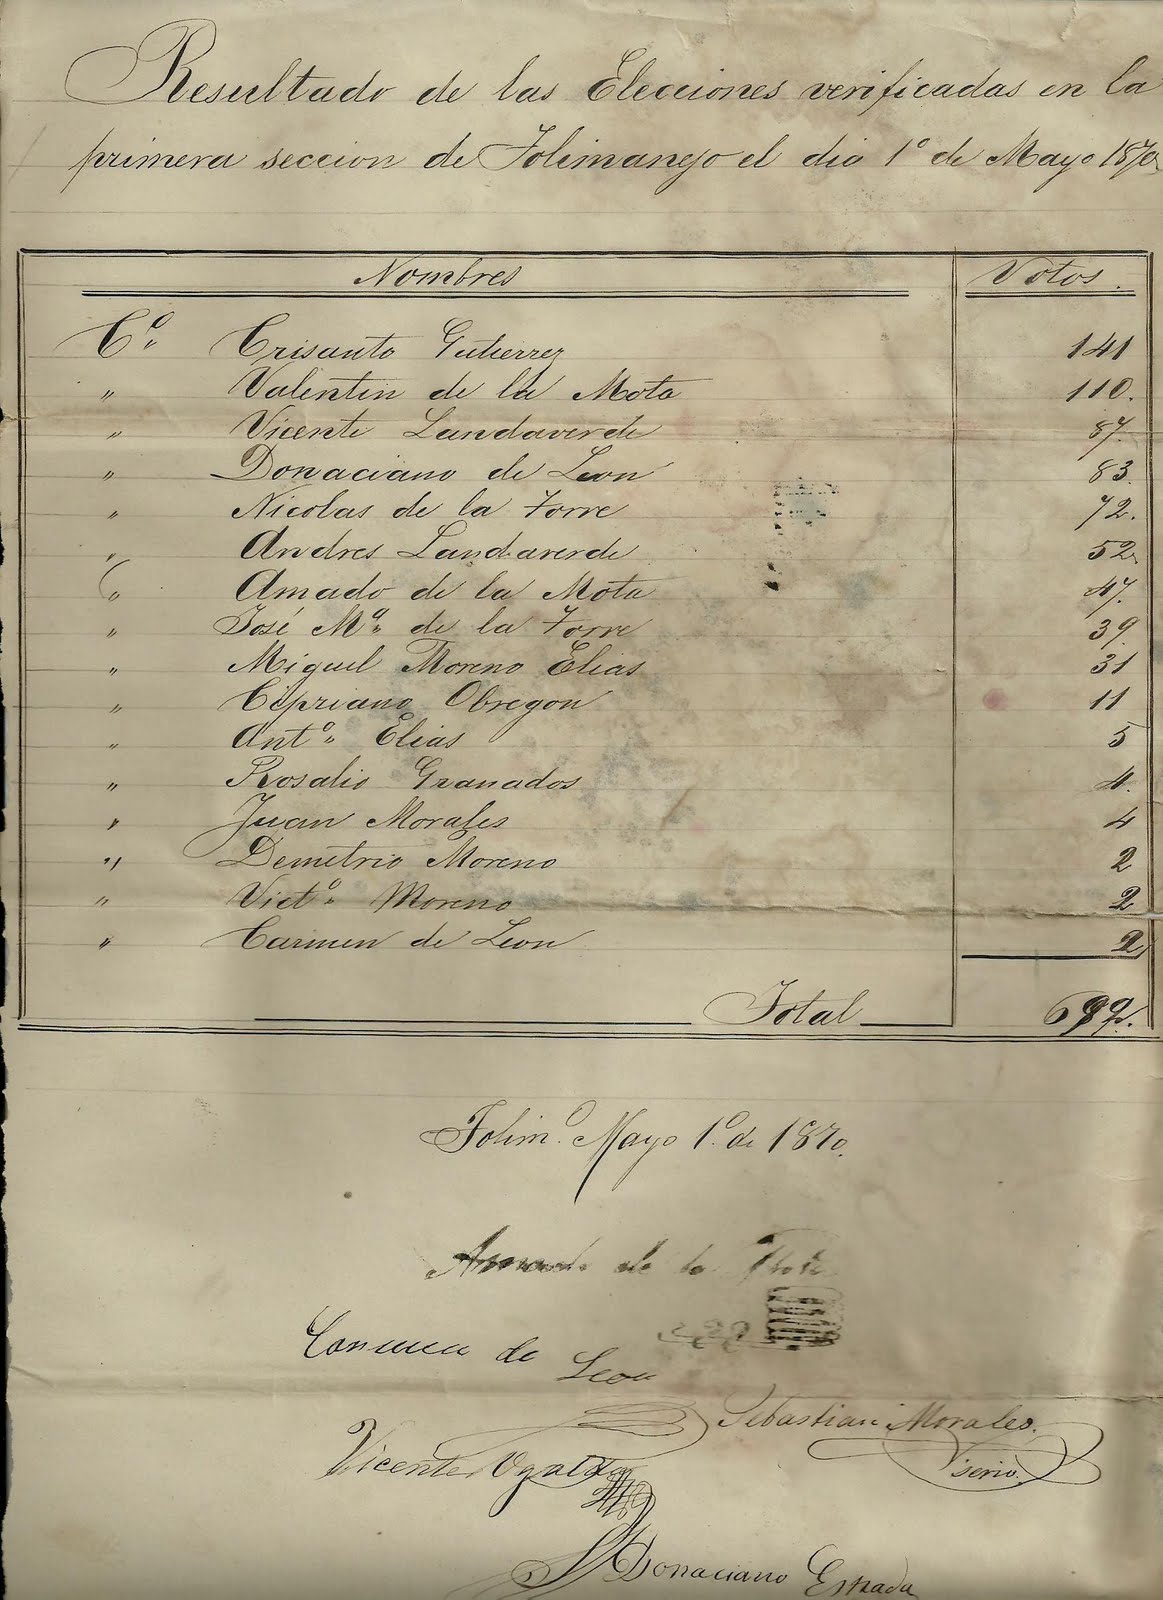 Resultado de las Elecciones verificadas en la
primera seccion de Tolimanejo el dia 1º de Mayo 1870.
Nombres Votos.
Cº. Crisanto Gutierrez 141
" Valentin de la Mota 110.
" Vicente Landaverde 87.
" Donaciano de Leon 83.
" Nicolas de la Torre 72.
" Andres Landaverde 52.
" Amado de la Mota 47.
" José Mª. de la Torre 39.
" Miguel Moreno Elias 31
" Cipriano Obregon 11
" Antº. Elias 5
" Rosalio Granados 4.
" Juan Morales 4
" Demetrio Moreno 2
" Victº. Moreno 2
" Carmen de Leon 2
Total 692.
Tolimº. Mayo 1º de 1870.
Amado de la Mota
de Leon
Sebastian Morales.
Vicente
serio.
Donaciano Estrada